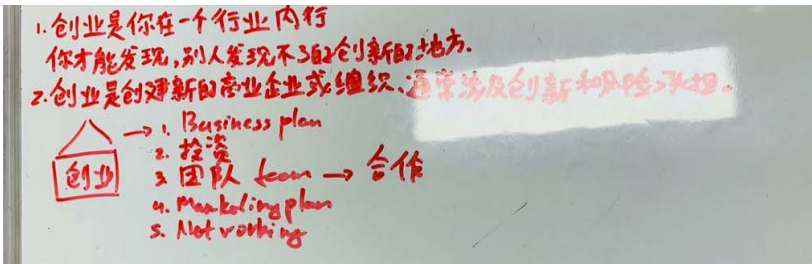 1. 创业是你在一个行业内行
你才能发现,别人发现不了的创新的地方.
2. 创业是创建新的商业企业或组织、通常涉及创新和风险承担。
创业 → 1. Business plan
2. 投资
3 团队 team → 合作
4. Marketing plan
5. Networking